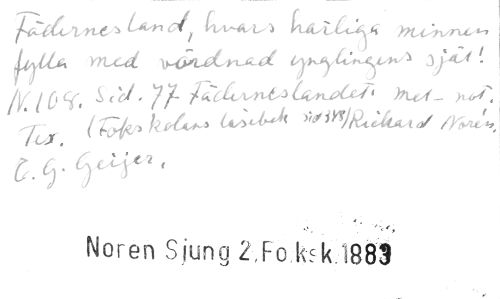 Fädernesland, hvars härliga minnen
fylla med vördnad ynglingens själ!
N. 108. Sid. 77 Fäderneslandet. met- not.
Tex. (Folkskolans läsebok sid 343) Richard Norén.
E. G. Geijer.
Noren Sjung 2, Folksk. 1883